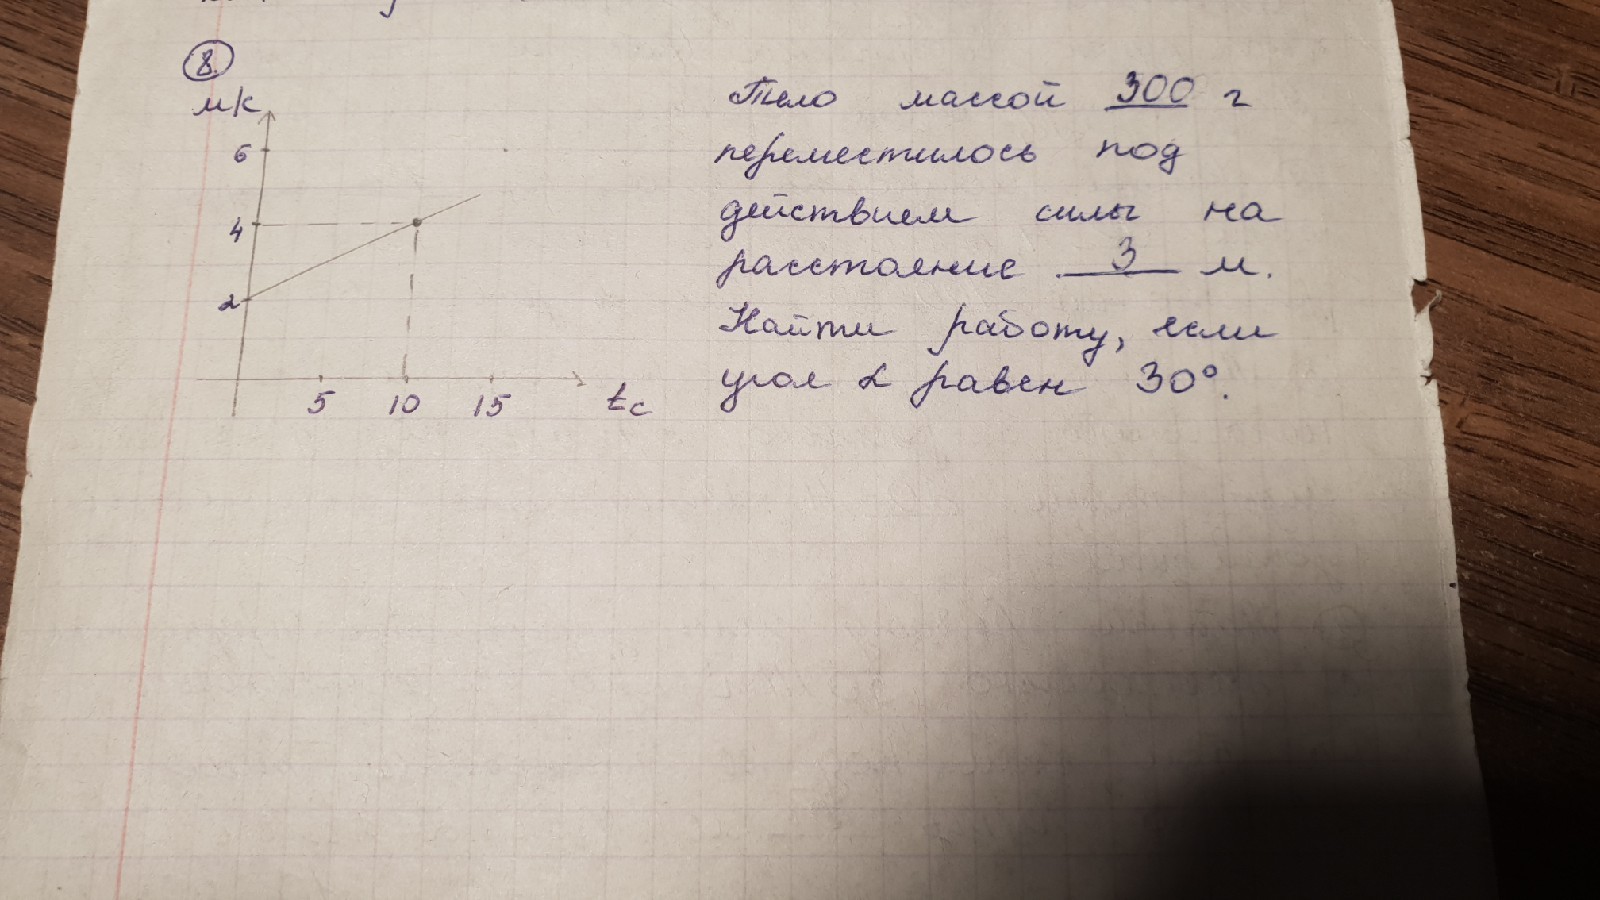 8.
мк
6
4
2
5 10 15 tс
Тело массой 300 г
переместилось под
действием силы на
расстояние 3 м.
Найти работу, если
угол α равен 30°.